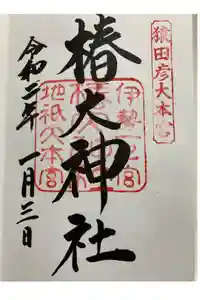 猿田彦大本宮
椿大神社
伊勢一之宮
地祇大本宮
令和二年 一月三日